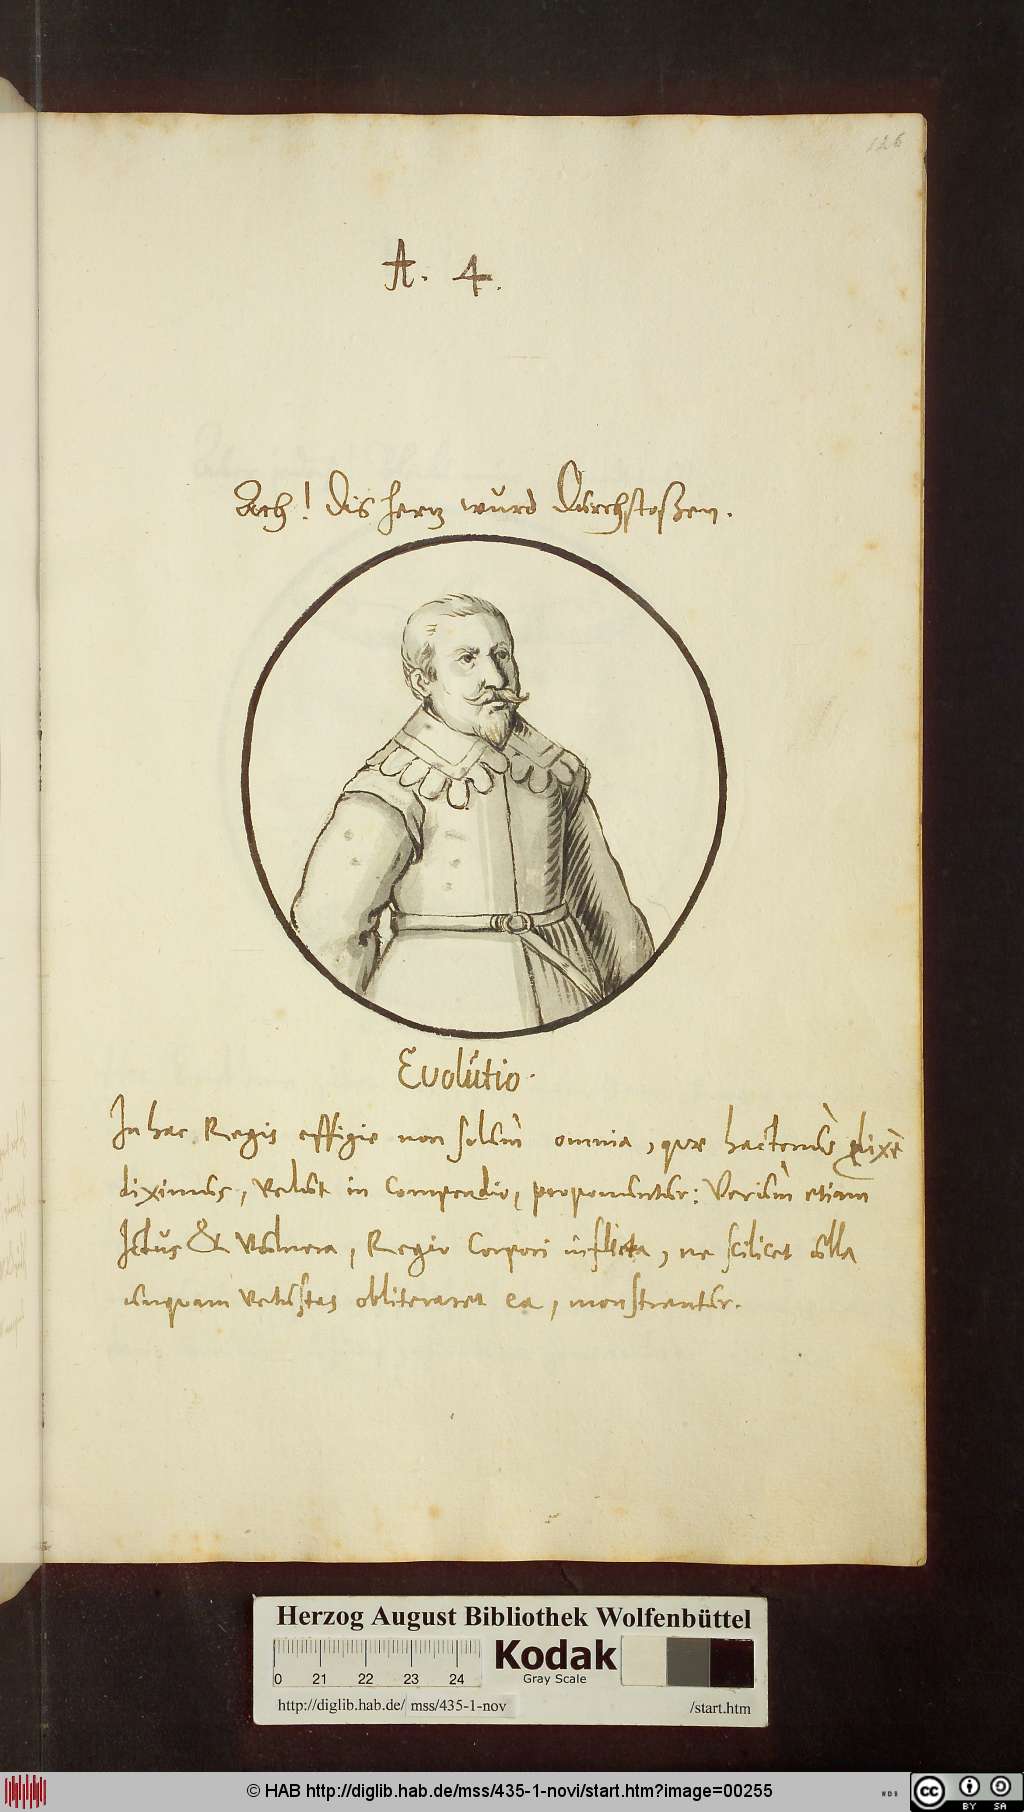 126
A. 4.
Ach! Dis hertz wurd Durchstoßen.
Evolutio.
In hac Regis effigie non solum omnia, quæ hactenus dixe
diximus, velut in Compendio, proponuntur: Verum etiam
Ictus & Vulnera, Regio Corpori inflicta, ne scilicet ulla
unquam vetustas obliteraret ea, monstrantur.
Herzog August Bibliothek Wolfenbüttel
0 21 22 23 24
Kodak
Gray Scale
http://diglib.hab.de/ mss/435-1-nov /start.htm
© HAB http://diglib.hab.de/mss/435-1-novi/start.htm?image=00255
WDB
cc BY SA